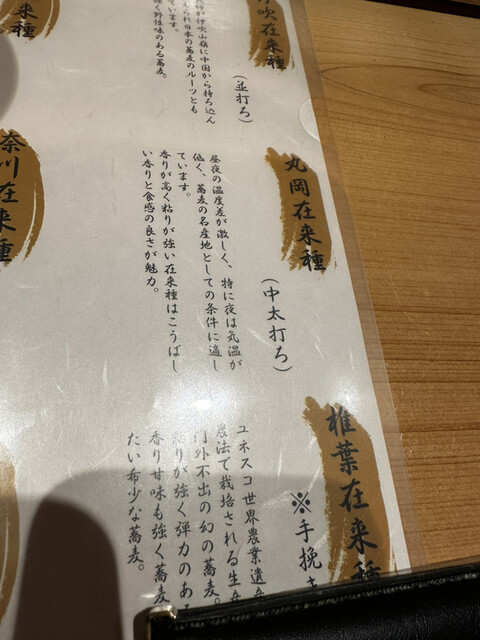 吹在来種
(並打ち)
が伊吹山嶺に中国から持ち込ん
られ日本の蕎麦のルーツとも
ています。
強く野性味のある蕎麦。
来種
丸岡在来種
(中太打ち)
昼夜の温度差が激しく、特に夜は気温が
低く、蕎麦の名産地としての条件に適し
ています。
香りが高く粘りが強い在来種はこうばし
い香りと食感の良さが魅力。
奈川在来種
椎葉在来種
※手挽き
ユネスコ世界農業遺産
農法で栽培される生産
門外不出の幻の蕎麦。
粘りが強く弾力のある
香り甘味も強く蕎麦
たい希少な蕎麦。